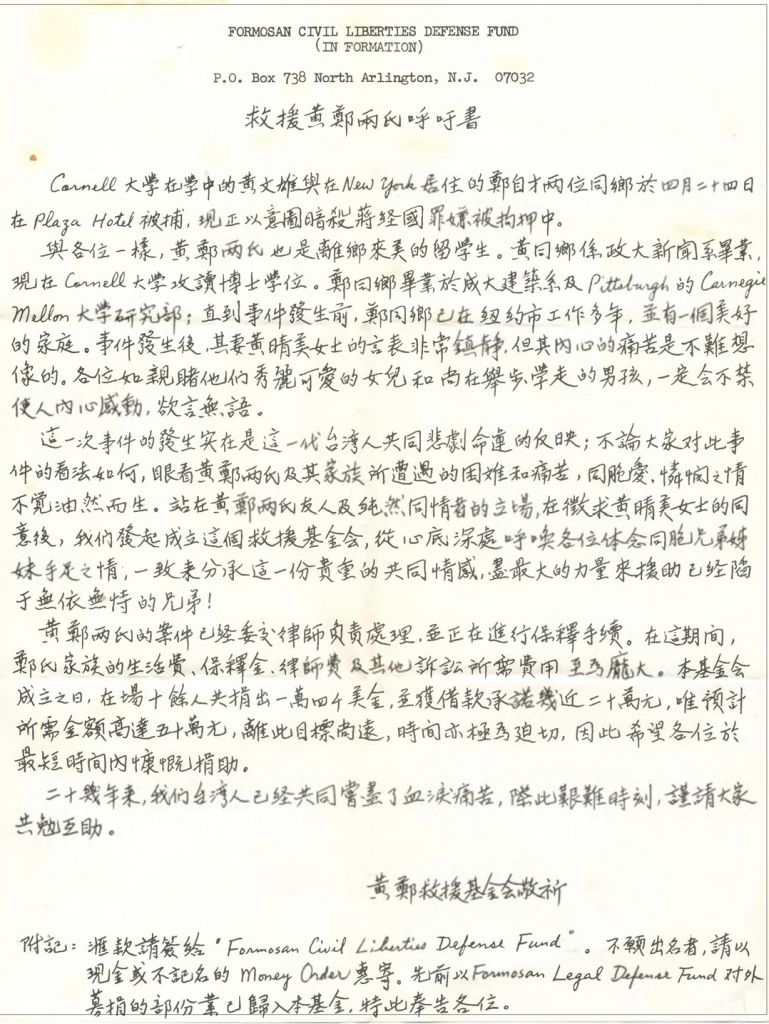 FORMOSAN CIVIL LIBERTIES DEFENSE FUND
(IN FORMATION)
P.O. Box 738 North Arlington, N.J. 07032
救援黃鄭兩氏呼吁書
Cornell 大学在学中的黃文雄與在New York居住的鄭自才两位同鄉於四月二十四日
在 Plaza Hotel 被捕，現正以意圖暗殺蔣経國罪嫌被拘押中。
與各位一樣，黃鄭两氏也是離鄉來美的留学生。黃同鄉係政大新聞系畢業，
現在 Cornell 大学攻讀博士学位。鄭同鄉畢業於成大建築系及Pittsburgh的Carnegie
Mellon大学研究部；直到事件發生前，鄭同鄉已在紐約市工作多年，並有一個美好
的家庭。事件發生後，其妻黃晴美女士的言表非常鎮静，但其內心的痛苦是不難想
像的。各位如親睹他们秀麗可愛的女兒和尚在舉步学走的男孩，一定会不禁
使人內心感動，欲言無語。
這一次事件的發生実在是這一代台湾人共同悲劇命運的反映；不論大家对此事
件的看法如何，眼看黃鄭两氏及其家族所遭遇的困难和痛苦，同胞愛、憐憫之情
不覚油然而生。站在黃鄭两氏友人及純然同情者的立場，在徵求黃晴美女士的同
意後，我们發起成立這個救援基金会，從心底深處呼喚各位体念同胞兄弟姊
妹手足之情，一致来分承這一份贵重的共同情感，盡最大的力量來援助已经陷
于無依無恃的兄弟！
黃鄭两氏的案件已経委交律師负责處理，並正在進行保釋手續。在這期间，
鄭氏家族的生活費、保釋金、律師费及其他訴訟所需费用至為龐大。本基金会
成立之日，在場十餘人共捐出一萬四千美金，並獲借款承諾幾近二十萬元，唯預計
所需金額高達五十萬元，離此目標尚遠，時间亦極為迫切，因此希望各位於
最短時间內慷慨捐助。
二十幾年来，我们台湾人已経共同嘗盡了血淚痛苦，際此艱難時刻，謹請大家
共勉互助。
黃鄭救援基金会敬祈
附記：滙款請簽给 "Formosan Civil Liberties Defense Fund"。不願出名者，請以
現金或不記名的 Money Order 惠寄。先前以Formosan Legal Defense Fund 对外
募捐的部份業已歸入本基金，特此奉告各位。